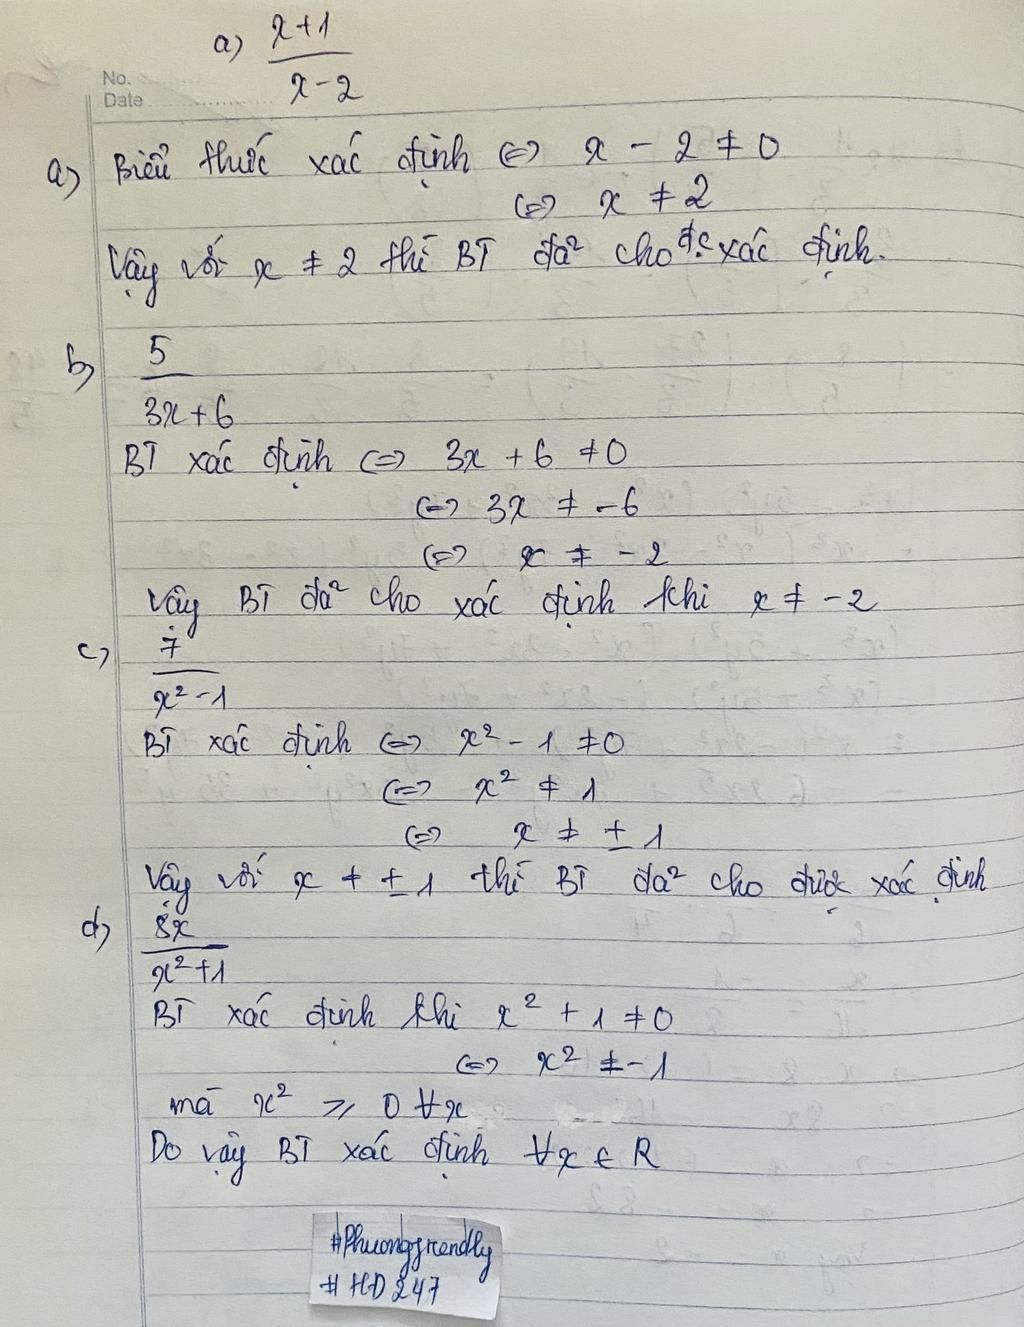 a) x+1
x-2
No.
Date
a) Biểu thức xác định <=> x - 2 ≠ 0
<=> x ≠ 2
Vậy với x ≠ 2 thì BT đã cho đc xác định.
b) 5
3x+6
BT xác định <=> 3x + 6 ≠ 0
<=> 3x ≠ -6
<=> x ≠ -2
Vậy BT đã cho xác định khi x ≠ -2
c) 7
x² - 1
BT xác định <=> x² - 1 ≠ 0
<=> x² ≠ 1
<=> x ≠ ± 1
Vậy với x ≠ ± 1 thì BT đã cho được xác định
d) 8x
x² + 1
BT xác định khi x² + 1 ≠ 0
<=> x² ≠ -1
mà x² ≥ 0 ∀x
Do vậy BT xác định ∀x ∈ R
#Phuongfrendly
#HD247